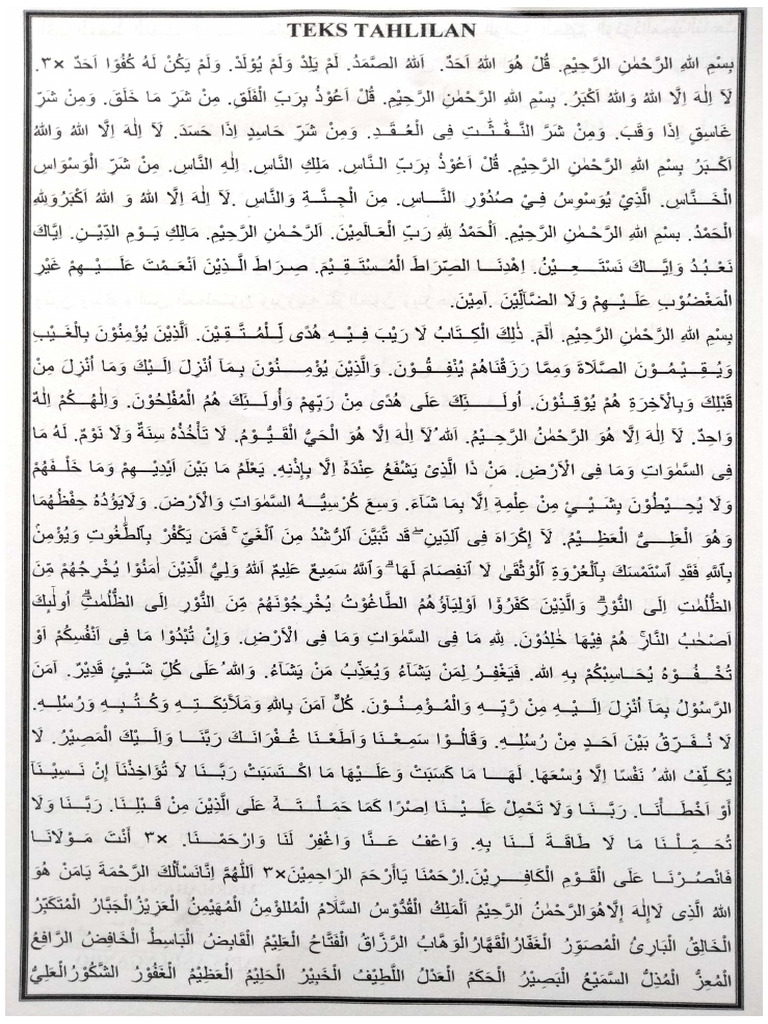 TEKS TAHLILAN
بِسْمِ اللهِ الرَّحْمٰنِ الرَّحِيْمِ. قُلْ هُوَ اللهُ اَحَدٌ. اَللهُ الصَّمَدُ. لَمْ يَلِدْ وَلَمْ يُوْلَدْ. وَلَمْ يَكُنْ لَهُ كُفُوًا اَحَدٌ ×٣.
لَا اِلٰهَ اِلَّا اللهُ وَاللهُ اَكْبَرُ. بِسْمِ اللهِ الرَّحْمٰنِ الرَّحِيْمِ. قُلْ اَعُوْذُ بِرَبِّ الْفَلَقِ. مِنْ شَرِّ مَا خَلَقَ. وَمِنْ شَرِّ
غَاسِقٍ اِذَا وَقَبَ. وَمِنْ شَرِّ النَّفّٰثٰتِ فِى الْعُقَدِ. وَمِنْ شَرِّ حَاسِدٍ اِذَا حَسَدَ. لَا اِلٰهَ اِلَّا اللهُ وَاللهُ
اَكْبَرُ بِسْمِ اللهِ الرَّحْمٰنِ الرَّحِيْمِ. قُلْ اَعُوْذُ بِرَبِّ النَّاسِ. مَلِكِ النَّاسِ. اِلٰهِ النَّاسِ. مِنْ شَرِّ الْوَسْوَاسِ
الْخَنَّاسِ. الَّذِيْ يُوَسْوِسُ فِيْ صُدُوْرِ النَّاسِ. مِنَ الْجِنَّةِ وَالنَّاسِ .لَا اِلٰهَ اِلَّا اللهُ وَ اللهُ اَكْبَرُوَلِلّٰهِ
الْحَمْدُ. بِسْمِ اللهِ الرَّحْمٰنِ الرَّحِيْمِ. اَلْحَمْدُ لِلّٰهِ رَبِّ الْعَالَمِيْنَ. اَلرَّحْمٰنِ الرَّحِيْمِ. مَالِكِ يَوْمِ الدِّيْنِ. اِيَّاكَ
نَعْبُدُ وَاِيَّاكَ نَسْتَعِيْنُ. اِهْدِنَا الصِّرَاطَ الْمُسْتَقِيْمَ. صِرَاطَ الَّذِيْنَ اَنْعَمْتَ عَلَيْهِمْ غَيْرِ
الْمَغْضُوْبِ عَلَيْهِمْ وَلَا الضَّآلِّيْنَ .آمِيْنَ.
بِسْمِ اللهِ الرَّحْمٰنِ الرَّحِيْمِ. اَلَمَ. ذٰلِكَ الْكِتَابُ لَا رَيْبَ فِيْهِ هُدًى لِلْمُتَّقِيْنَ. اَلَّذِيْنَ يُؤْمِنُوْنَ بِالْغَيْبِ
وَيُقِيْمُوْنَ الصَّلَاةَ وَمِمَّا رَزَقْنَاهُمْ يُنْفِقُوْنَ. وَالَّذِيْنَ يُؤْمِنُوْنَ بِمَآ اُنْزِلَ اِلَيْكَ وَمَا اُنْزِلَ مِنْ
قَبْلِكَ وَبِالْآخِرَةِ هُمْ يُوْقِنُوْنَ. اُولَئِكَ عَلَى هُدًى مِنْ رَبِّهِمْ وَاُولَئِكَ هُمُ الْمُفْلِحُوْنَ. وَاِلٰهُكُمْ اِلٰهٌ
وَاحِدٌ. لَا اِلٰهَ اِلَّا هُوَ الرَّحْمٰنُ الرَّحِيْمُ. اَللهُ لَا اِلٰهَ اِلَّا هُوَ الْحَيُّ الْقَيُّوْمُ. لَا تَأْخُذُهُ سِنَةٌ وَلَا نَوْمٌ. لَهُ مَا
فِى السَّمٰوَاتِ وَمَا فِى الْاَرْضِ. مَنْ ذَا الَّذِىْ يَشْفَعُ عِنْدَهُ اِلَّا بِاِذْنِهِ. يَعْلَمُ مَا بَيْنَ اَيْدِيْهِمْ وَمَا خَلْفَهُمْ
وَلَا يُحِيْطُوْنَ بِشَيْئٍ مِنْ عِلْمِهِ اِلَّا بِمَا شَآءَ. وَسِعَ كُرْسِيُّهُ السَّمٰوَاتِ وَالْاَرْضَ. وَلَايَؤُدُهُ حِفْظُهُمَا
وَهُوَ الْعَلِىُّ الْعَظِيْمُ. لَآ اِكْرَاهَ فِى الدِّيْنِ ۖ قَد تَّبَيَّنَ ٱلرُّشْدُ مِنَ ٱلْغَيِّ ۚ فَمَن يَكْفُرْ بِٱلطَّٰغُوتِ وَيُؤْمِنْ
بِٱللَّهِ فَقَدِ ٱسْتَمْسَكَ بِٱلْعُرْوَةِ ٱلْوُثْقَىٰ لَا ٱنفِصَامَ لَهَا ۗ وَٱللَّهُ سَمِيعٌ عَلِيمٌ اَللهُ وَلِيُّ الَّذِيْنَ اٰمَنُوْا يُخْرِجُهُمْ مِّنَ
الظُّلُمٰتِ اِلَى النُّوْرِۗ وَالَّذِيْنَ كَفَرُوْا اَوْلِيَاۤؤُهُمُ الطَّاغُوْتُ يُخْرِجُوْنَهُمْ مِّنَ النُّوْرِ اِلَى الظُّلُمٰتِۗ اُولٰۤئِكَ
اَصْحٰبُ النَّارِۚ هُمْ فِيْهَا خٰلِدُوْنَ. لِلّٰهِ مَا فِى السَّمٰوَاتِ وَمَا فِى الْاَرْضِ. وَاِنْ تُبْدُوْا مَا فِى اَنْفُسِكُمْ اَوْ
تُخْفُوْهُ يُحَاسِبْكُمْ بِهِ الله. فَيَغْفِرُ لِمَنْ يَشَآءُ وَيُعَذِّبُ مَنْ يَشَآءُ. وَاللهُ عَلَى كُلِّ شَيْئٍ قَدِيْرٌ. آمَنَ
الرَّسُوْلُ بِمَآ اُنْزِلَ اِلَيْهِ مِنْ رَّبِّهِ وَالْمُؤْمِنُوْنَ. كُلٌّ آمَنَ بِاللهِ وَمَلَآئِكَتِهِ وَكُتُبِهِ وَرُسُلِهِ.
لَا نُفَرِّقُ بَيْنَ اَحَدٍ مِنْ رُسُلِهِ. وَقَالُوْا سَمِعْنَا وَاَطَعْنَا غُفْرَانَكَ رَبَّنَا وَاِلَيْكَ الْمَصِيْرُ. لَا
يُكَلِّفُ اللهُ نَفْسًا اِلَّا وُسْعَهَا. لَهَا مَا كَسَبَتْ وَعَلَيْهَا مَا اكْتَسَبَتْ رَبَّنَا لَا تُؤَاخِذْنَآ اِنْ نَسِيْنَآ
اَوْ اَخْطَأْنَا. رَبَّنَا وَلَا تَحْمِلْ عَلَيْنَا اِصْرًا كَمَا حَمَلْتَهُ عَلَى الَّذِيْنَ مِنْ قَبْلِنَا. رَبَّنَا وَلَا
تُحَمِّلْنَا مَا لَا طَاقَةَ لَنَا بِهِ. وَاعْفُ عَنَّا وَاغْفِرْ لَنَا وَارْحَمْنَا. ×٣ اَنْتَ مَوْلَانَا
فَانْصُرْنَا عَلَى الْقَوْمِ الْكَافِرِيْنَ.اِرْحَمْنَا يَااَرْحَمَ الرَاحِمِيْنَ×٣ اَللّٰهُمَّ اِنَّانَسْأَلُكَ الرَّحْمَةَ يَامَنْ هُوَ
اللهُ الَّذِى لَااِلٰهَ اِلَّاهُوَالرَّحْمٰنُ الرَّحِيْمُ اَلْمَلِكُ الْقُدُّوْسُ السَّلَامُ الْمُلؤْمِنُ الْمُهَيْمِنُ الْعَزِيْزُ الْجَبَّارُ الْمُتَكَبِّرُ
الْخَالِقُ الْبَارِئُ الْمُصَوِّرُ الْغَفَّارُالْقَهَّارُالْوَهَّابُ الرَّزَّاقُ الْفَتَّاحُ الْعَلِيْمُ الْقَابِضُ الْبَاسِطُ الْخَافِضُ الرَّافِعُ
الْمُعِزُّ الْمُذِلُّ السَّمِيْعُ الْبَصِيْرُ الْحَكَمُ الْعَدْلُ اللَّطِيْفُ الْخَبِيْرُ الْحَلِيْمُ الْعَظِيْمُ الْغَفُوْرُ الشَّكُوْرُالْعَلِيُّ